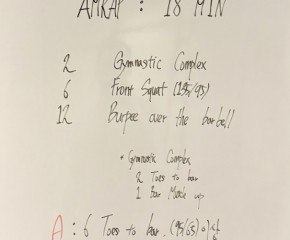 AMRAP : 18 MIN
2 Gymnastic Complex
6 Front Squat (135/95)
12 Burpee over the barbell
* Gymnastic Complex
2 Toes to bar
1 Bar Muscle up
A : 6 Toes to bar. (95/65)